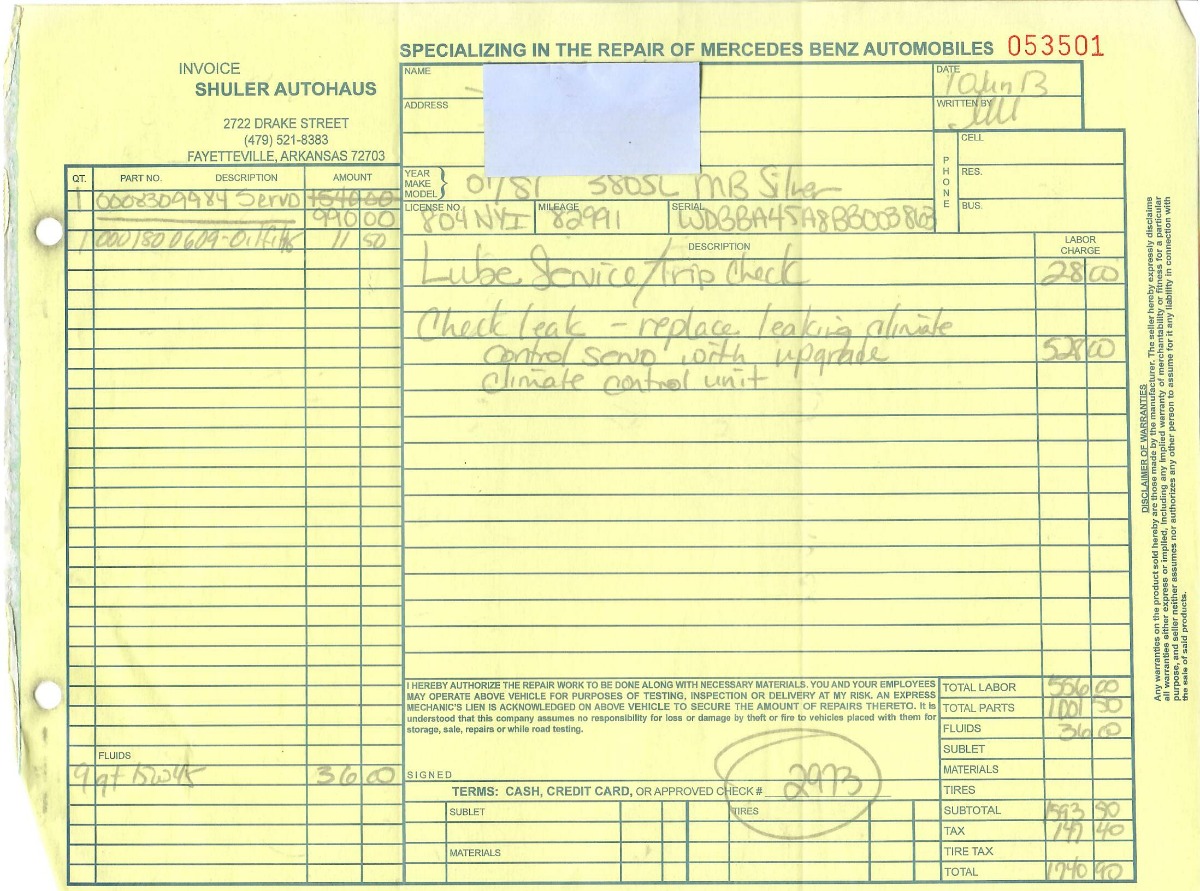 SPECIALIZING IN THE REPAIR OF MERCEDES BENZ AUTOMOBILES 053501
INVOICE
SHULER AUTOHAUS
2722 DRAKE STREET
(479) 521-8383
FAYETTEVILLE, ARKANSAS 72703
NAME
DATE
ADDRESS
WRITTEN BY
PHONE
CELL
RES.
BUS.
YEAR MAKE MODEL } 01/81 380SL MB Silver
LICENSE NO. 804 NYI MILEAGE 82991 SERIAL WDBBA45A8BB003863
QT. PART NO. DESCRIPTION AMOUNT
1 0008309984 Servo 1540 00
990 00
1 000180 0609-Oil filt 11 50
FLUIDS
9 qt 15w45 36 00
DESCRIPTION LABOR CHARGE
Lube Service/trip check 28 00
Check leak - replace leaking climate
control servo with upgrade 528 00
climate control unit
I HEREBY AUTHORIZE THE REPAIR WORK TO BE DONE ALONG WITH NECESSARY MATERIALS. YOU AND YOUR EMPLOYEES
MAY OPERATE ABOVE VEHICLE FOR PURPOSES OF TESTING, INSPECTION OR DELIVERY AT MY RISK. AN EXPRESS
MECHANIC'S LIEN IS ACKNOWLEDGED ON ABOVE VEHICLE TO SECURE THE AMOUNT OF REPAIRS THERETO. It is
understood that this company assumes no responsibility for loss or damage by theft or fire to vehicles placed with them for
storage, sale, repairs or while road testing.
SIGNED
TERMS: CASH, CREDIT CARD, OR APPROVED CHECK # 2973
SUBLET TIRES
MATERIALS
TOTAL LABOR 556 00
TOTAL PARTS 1001 50
FLUIDS 36 00
SUBLET
MATERIALS
TIRES
SUBTOTAL 1593 50
TAX 147 40
TIRE TAX
TOTAL 1740 90
DISCLAIMER OF WARRANTIES
Any warranties on the product sold hereby are those made by the manufacturer. The seller hereby expressly disclaims
all warranties either express or implied, including any implied warranty of merchantability or fitness for a particular
purpose, and seller neither assumes nor authorizes any other person to assume for it any liability in connection with
the sale of said products.